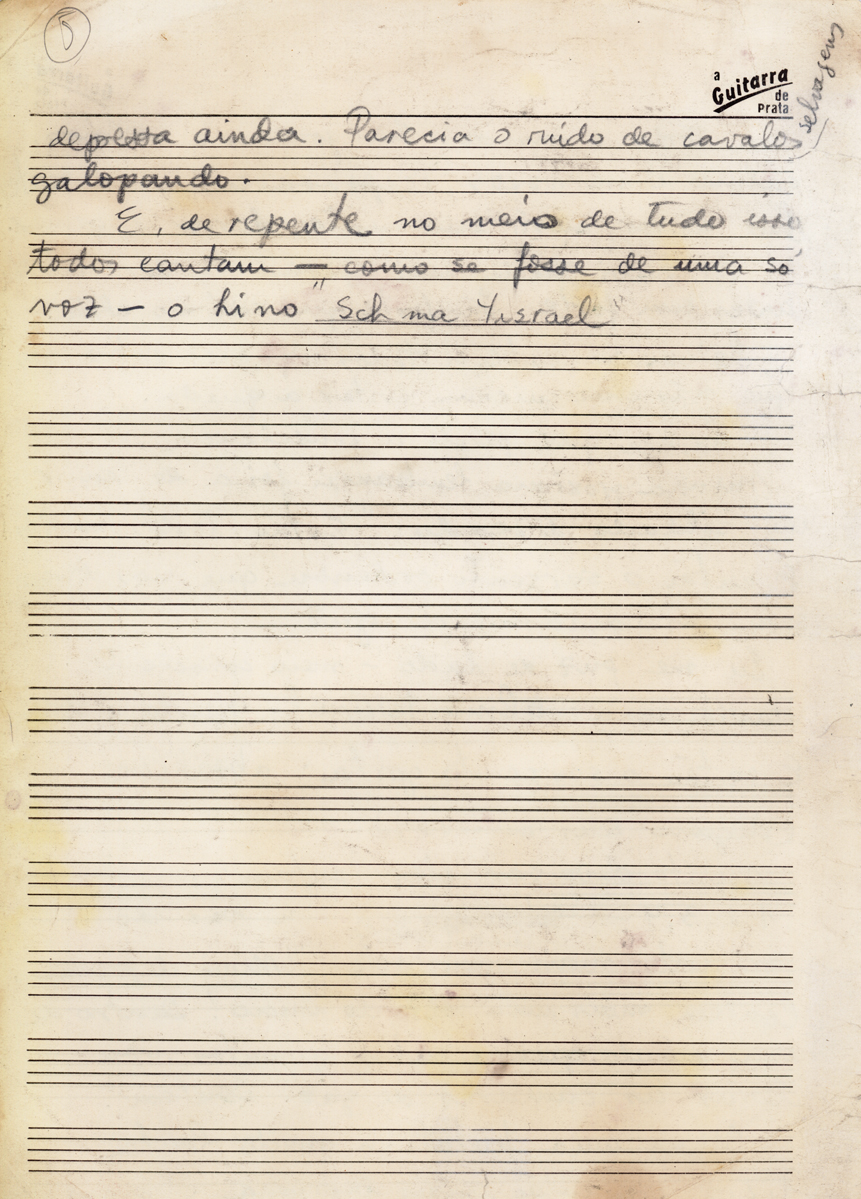 5
a
Guitarra
de
Prata
depressa ainda. Parecia o ruido de cavalos selvagens
galopando.
E, de repente no meio de tudo isso
todos cantam — como se fosse de uma só
voz — o hino "Schma Yisrael"